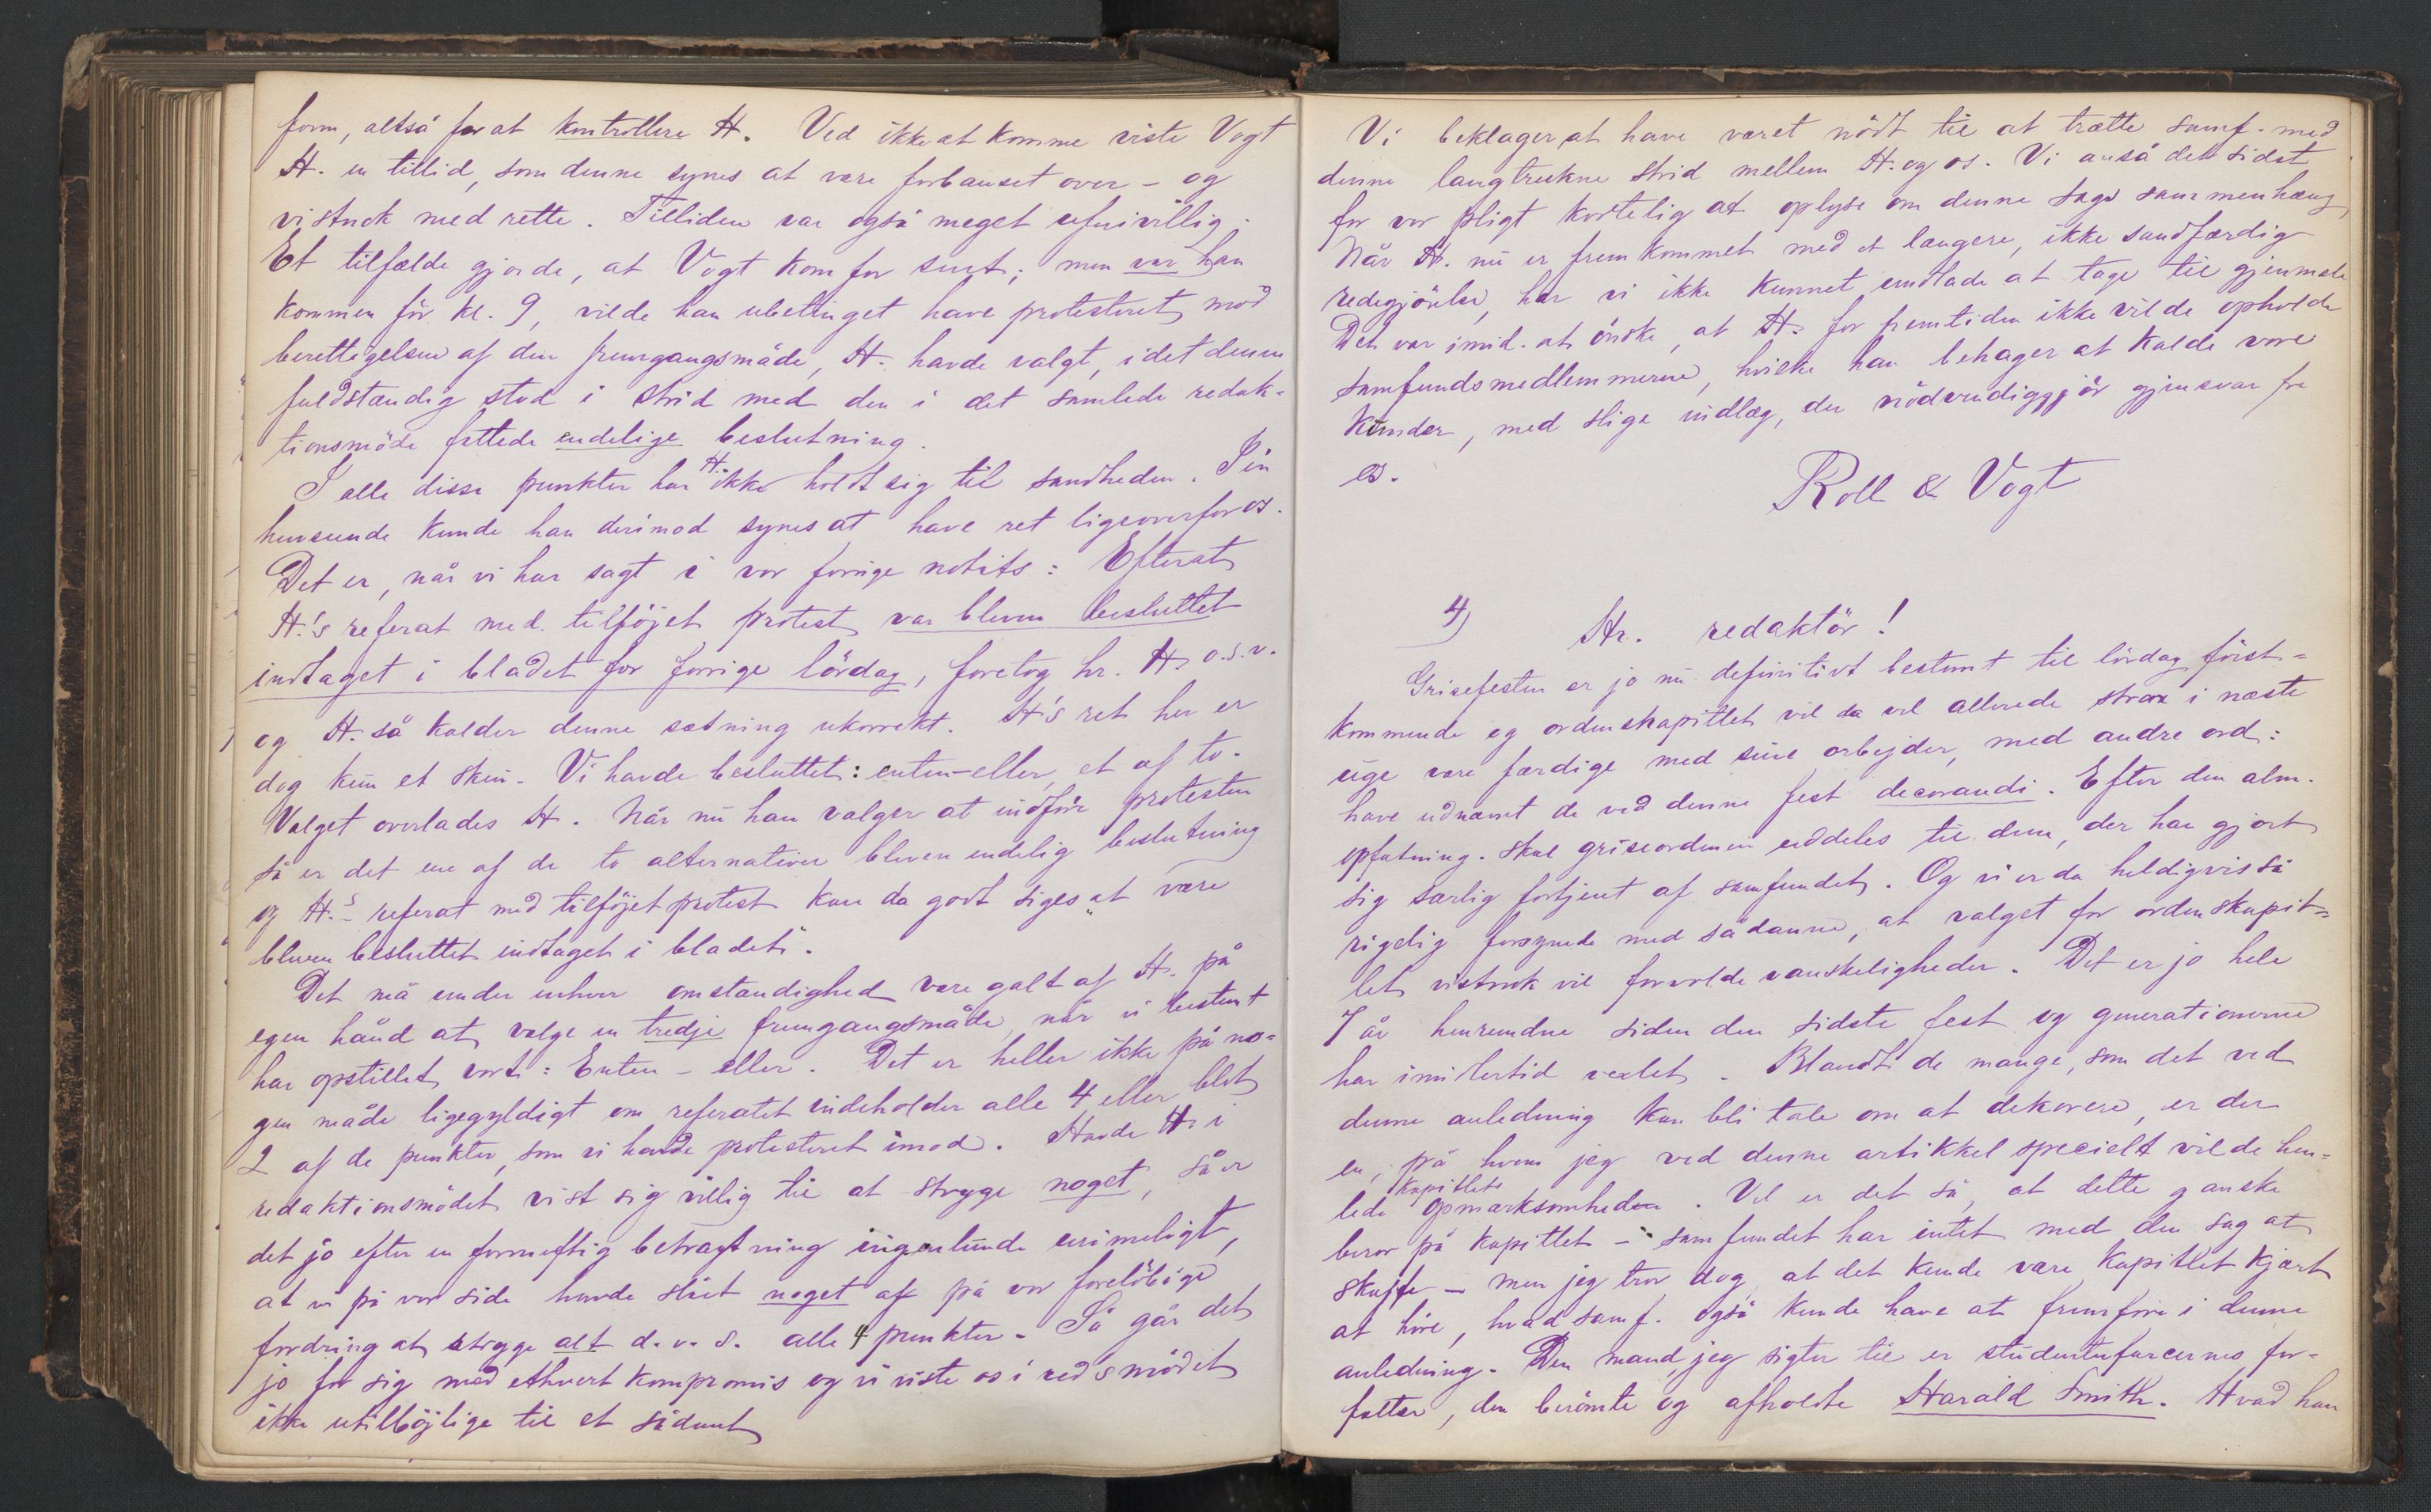 form, altså for at kontrollere H. Ved ikke at komme viste Vogt
H. en tillid, som denne synes at være forbauset over – og
vistnok med rette. Tilliden var også meget ufrivillig.
Et tilfælde gjorde, at Vogt kom for sent; men var han
kommen før kl. 9, vilde han ubetinget have protesteret mod
berettigelsen af den fremgangsmåde, H. havde valgt, idet denne
fuldstændig stod i strid med den i det samlede redak-
tionsmøde fattede endelige beslutning.
I alle disse punkter har H. ikke holdt sig til sandheden. I én
henseende kunde han derimod synes at have ret ligeoverfor os.
Det er, når vi har sagt i vor forrige notits: Efterat
H.'s referat med tilføjet protest var bleven besluttet
indtaget i bladet for forrige lördag, foretog hr. H. o.s.v.
og H. så kalder denne sætning ukorrekt. H's ret her er
dog kun et skin. Vi havde besluttet: enten–eller, et af to.
Valget overlades H. Når nu han vælger at indføre protesten
så er det ene af de to alternativer bleven endelig beslutning
og H.'s referat med tilföjet protest kan da godt siges at "være
bleven besluttet indtaget i bladet".
Det må under enhver omstændighed være galt af H. på
egen hånd at vælge en tredje fremgangsmåde, når vi bestemt
har opstillet vort: Enten – eller. Det er heller ikke på no-
gen måde ligegyldigt om referatet indeholder alle 4 eller blot
2 af de punkter, som vi havde protesteret imod. Havde H. i
redaktionsmödet vist sig villig til at stryge noget, så er
det jo efter en fornuftig betragtning ingenlunde urimeligt,
at vi på vor side havde slået noget af på vor forelöbige
fordring at stryge alt d.v.s. alle 4 punkter. Så går det
jo for sig med ethvert kompromis og vi viste os i red's mödet
ikke utilböjlige til et sådant
Vi beklager at have været nödt til at trætte samf. med
denne langtrukne strid mellem H. og os. Vi anså det sidst
for vor pligt kortelig at oplyse om denne sags sammenhæng,
Når H. nu er fremkommet med et længere, ikke sandfærdig
redegjörelse, har vi ikke kunnet undlade at tage til gjenmæle
Det var imid. at önske, at H. for fremtiden ikke vilde opholde
samfundsmedlemmerne, hvilke han behager at kalde vore
kunder, med slige indlæg, der nödvendiggjör gjensvar fra
os.
Roll & Vogt
4)
Hr. redaktör!
Grisefesten er jo nu definitivt bestemt til lördag först-
kommende og ordenskapitlet vil da vel allerede strax i næste
uge være færdige med sine arbejder, med andre ord:
have udnævnt de ved denne fest decorandi. Efter den alm.
opfatning skal griseordenen uddeles til dem, der har gjort
sig særlig fortjent af samfundet. Og vi er da heldigvis så
rigelig forsynede med sådanne, at valget for ordenskapit-
let vistnok vil forvolde vanskeligheder. Det er jo hele
7 år henrundne siden den sidste fest og generationerne
har imidlertid vexlet. Blandt de mange, som det ved
denne anledning kan bli tale om at dekorere, er der
en, på hvem jeg ved denne artikkel specielt vilde hen-
lede kapitlets opmærksomheden. Vel er det så, at dette ganske
beror på kapitlet – samfundet har intet med den sag at
skaffe – men jeg tror dog, at det kunde være kapitlet kjært
at höre, hvad samf. også kunde have at fremföre i denne
anledning. Den mand jeg sigter til er studenterfarcernes for-
fatter, den berömte og afholdte Harald Smith. Hvad han